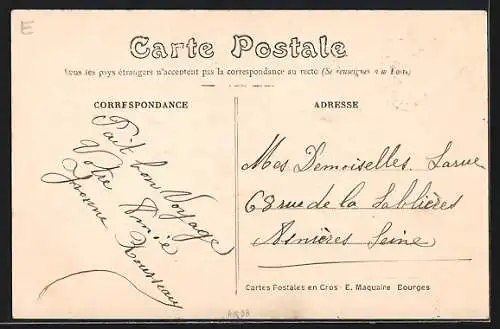 E
Carte Postale
Tous les pays étrangers n'acceptent pas la correspondance au recto (Se renseigner à la Poste)
CORRESPONDANCE
ADRESSE
Fait bon Voyage
Votre Amie
Yvonne Rousseau
Mes Demoiselles. Larue
68 rue de la Sablières
Asnières Seine
Cartes Postales en Gros - E. Maquaire Bourges